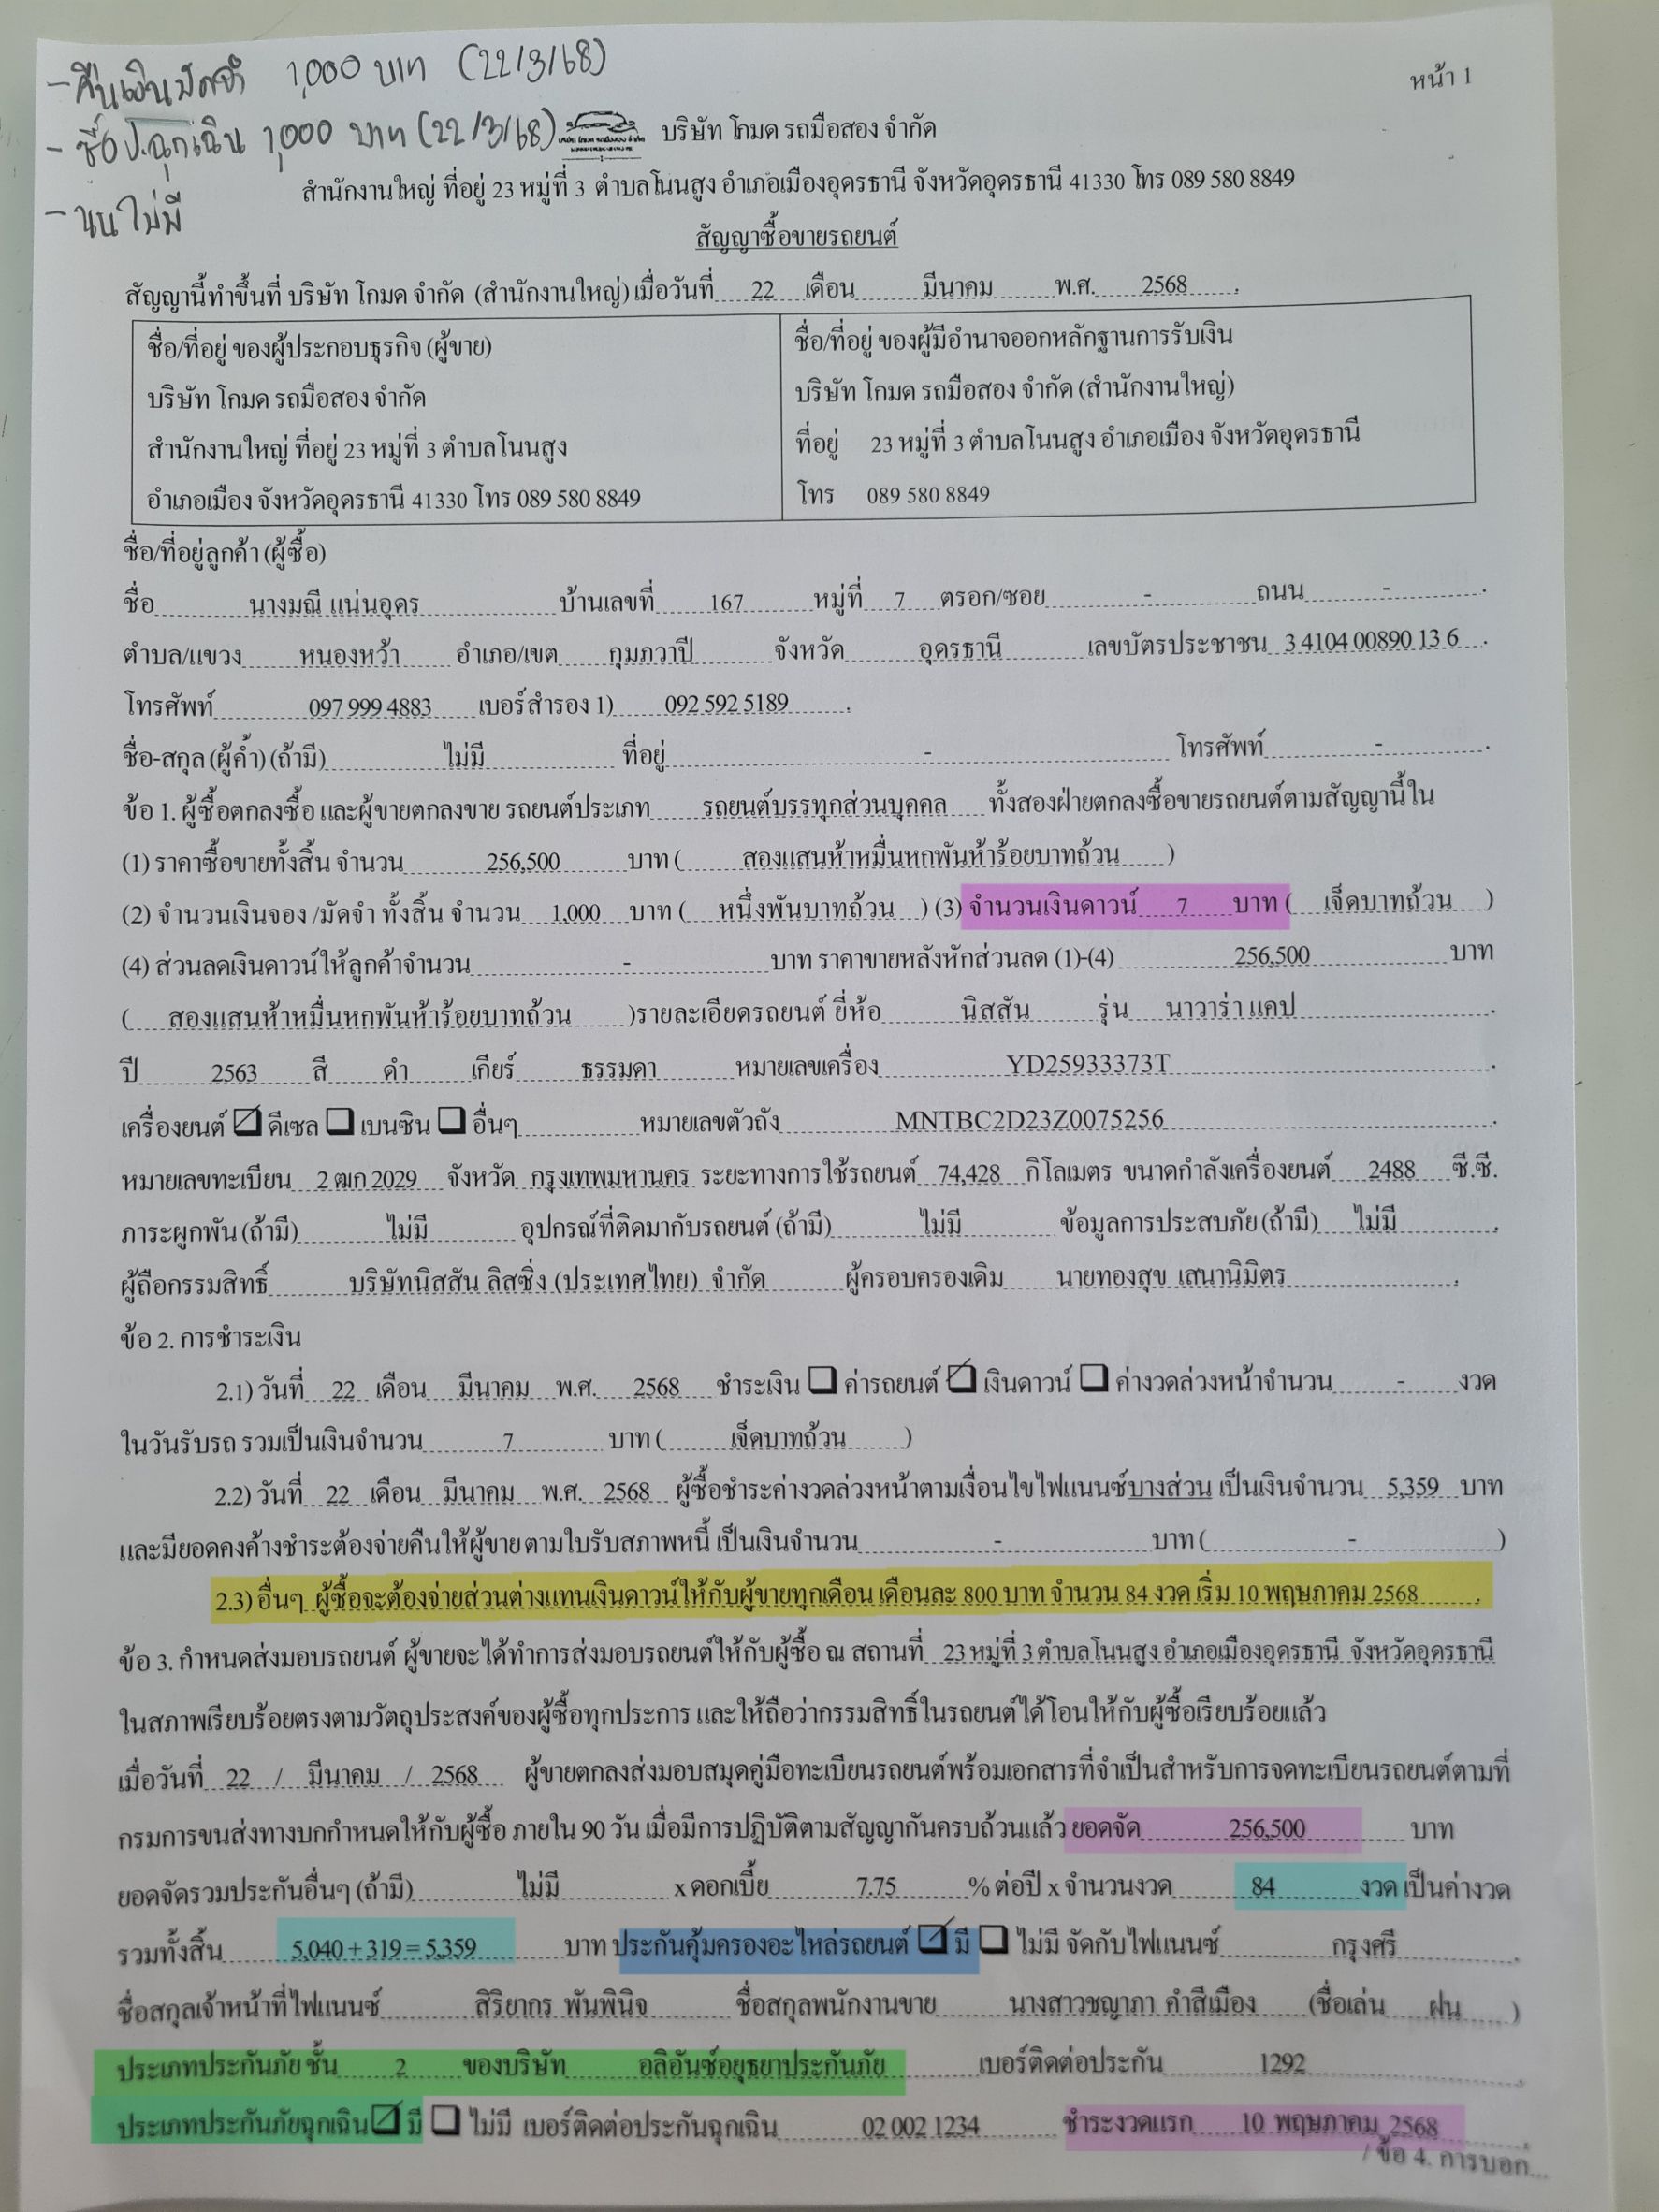 - คืนเงินมัดจำ 1,000 บาท (22/3/68)
หน้า 1
- ซื้อ ป.ฉุกเฉิน 1,000 บาท (22/3/68)
บริษัท โกมด รถมือสอง จำกัด
สำนักงานใหญ่ ที่อยู่ 23 หมู่ที่ 3 ตำบลโนนสูง อำเภอเมืองอุดรธานี จังหวัดอุดรธานี 41330 โทร 089 580 8849
- นน ไม่มี
สัญญาซื้อขายรถยนต์
สัญญานี้ทำขึ้นที่ บริษัท โกมด จำกัด (สำนักงานใหญ่) เมื่อวันที่ 22 เดือน มีนาคม พ.ศ. 2568
ชื่อ/ที่อยู่ ของผู้ประกอบธุรกิจ (ผู้ขาย)
บริษัท โกมด รถมือสอง จำกัด
สำนักงานใหญ่ ที่อยู่ 23 หมู่ที่ 3 ตำบลโนนสูง
อำเภอเมือง จังหวัดอุดรธานี 41330 โทร 089 580 8849
ชื่อ/ที่อยู่ ของผู้มีอำนาจออกหลักฐานการรับเงิน
บริษัท โกมด รถมือสอง จำกัด (สำนักงานใหญ่)
ที่อยู่ 23 หมู่ที่ 3 ตำบลโนนสูง อำเภอเมือง จังหวัดอุดรธานี
โทร 089 580 8849
ชื่อ/ที่อยู่ลูกค้า (ผู้ซื้อ)
ชื่อ นางมณี แน่นอุดร บ้านเลขที่ 167 หมู่ที่ 7 ตรอก/ซอย - ถนน -
ตำบล/แขวง หนองหว้า อำเภอ/เขต กุมภวาปี จังหวัด อุดรธานี เลขบัตรประชาชน 3 4104 00890 13 6
โทรศัพท์ 097 999 4883 เบอร์สำรอง 1) 092 592 5189
ชื่อ-สกุล (ผู้ค้ำ) (ถ้ามี) ไม่มี ที่อยู่ - โทรศัพท์ -
ข้อ 1. ผู้ซื้อตกลงซื้อ และผู้ขายตกลงขาย รถยนต์ประเภท รถยนต์บรรทุกส่วนบุคคล ทั้งสองฝ่ายตกลงซื้อขายรถยนต์ตามสัญญานี้ใน
(1) ราคาซื้อขายทั้งสิ้น จำนวน 256,500 บาท ( สองแสนห้าหมื่นหกพันห้าร้อยบาทถ้วน )
(2) จำนวนเงินจอง /มัดจำ ทั้งสิ้น จำนวน 1,000 บาท ( หนึ่งพันบาทถ้วน ) (3) จำนวนเงินดาวน์ 7 บาท ( เจ็ดบาทถ้วน )
(4) ส่วนลดเงินดาวน์ให้ลูกค้าจำนวน - บาท ราคาขายหลังหักส่วนลด (1)-(4) 256,500 บาท
( สองแสนห้าหมื่นหกพันห้าร้อยบาทถ้วน )รายละเอียดรถยนต์ ยี่ห้อ นิสสัน รุ่น นาวาร่า แคป
ปี 2563 สี ดำ เกียร์ ธรรมดา หมายเลขเครื่อง YD25933373T
เครื่องยนต์ ☑ ดีเซล ☐ เบนซิน ☐ อื่นๆ หมายเลขตัวถัง MNTBC2D23Z0075256
หมายเลขทะเบียน 2 ฒก 2029 จังหวัด กรุงเทพมหานคร ระยะทางการใช้รถยนต์ 74,428 กิโลเมตร ขนาดกำลังเครื่องยนต์ 2488 ซี.ซี.
ภาระผูกพัน (ถ้ามี) ไม่มี อุปกรณ์ที่ติดมากับรถยนต์ (ถ้ามี) ไม่มี ข้อมูลการประสบภัย (ถ้ามี) ไม่มี
ผู้ถือกรรมสิทธิ์ บริษัทนิสสัน ลิสซิ่ง (ประเทศไทย) จำกัด ผู้ครอบครองเดิม นายทองสุข เสนานิมิตร
ข้อ 2. การชำระเงิน
2.1) วันที่ 22 เดือน มีนาคม พ.ศ. 2568 ชำระเงิน ☐ ค่ารถยนต์ ☑ เงินดาวน์ ☐ ค่างวดล่วงหน้าจำนวน - งวด
ในวันรับรถ รวมเป็นเงินจำนวน 7 บาท ( เจ็ดบาทถ้วน )
2.2) วันที่ 22 เดือน มีนาคม พ.ศ. 2568 ผู้ซื้อชำระค่างวดล่วงหน้าตามเงื่อนไขไฟแนนซ์บางส่วน เป็นเงินจำนวน 5,359 บาท
และมียอดคงค้างชำระต้องจ่ายคืนให้ผู้ขาย ตามใบรับสภาพหนี้ เป็นเงินจำนวน - บาท ( - )
2.3) อื่นๆ ผู้ซื้อจะต้องจ่ายส่วนต่างแทนเงินดาวน์ให้กับผู้ขายทุกเดือน เดือนละ 800 บาท จำนวน 84 งวด เริ่ม 10 พฤษภาคม 2568
ข้อ 3. กำหนดส่งมอบรถยนต์ ผู้ขายจะได้ทำการส่งมอบรถยนต์ให้กับผู้ซื้อ ณ สถานที่ 23 หมู่ที่ 3 ตำบลโนนสูง อำเภอเมืองอุดรธานี จังหวัดอุดรธานี
ในสภาพเรียบร้อยตรงตามวัตถุประสงค์ของผู้ซื้อทุกประการ และให้ถือว่ากรรมสิทธิ์ในรถยนต์ได้โอนให้กับผู้ซื้อเรียบร้อยแล้ว
เมื่อวันที่ 22 / มีนาคม / 2568 ผู้ขายตกลงส่งมอบสมุดคู่มือทะเบียนรถยนต์พร้อมเอกสารที่จำเป็นสำหรับการจดทะเบียนรถยนต์ตามที่
กรมการขนส่งทางบกกำหนดให้กับผู้ซื้อ ภายใน 90 วัน เมื่อมีการปฏิบัติตามสัญญากันครบถ้วนแล้ว ยอดจัด 256,500 บาท
ยอดจัดรวมประกันอื่นๆ (ถ้ามี) ไม่มี x ดอกเบี้ย 7.75 % ต่อปี x จำนวนงวด 84 งวด เป็นค่างวด
รวมทั้งสิ้น 5,040 + 319 = 5,359 บาท ประกันคุ้มครองอะไหล่รถยนต์ ☑ มี ☐ ไม่มี จัดกับไฟแนนซ์ กรุงศรี
ชื่อสกุลเจ้าหน้าที่ไฟแนนซ์ สิริยากร พันพินิจ ชื่อสกุลพนักงานขาย นางสาวชญาภา คำสีเมือง (ชื่อเล่น ฝน )
ประเภทประกันภัย ชั้น 2 ของบริษัท อลิอันซ์อยุธยาประกันภัย เบอร์ติดต่อประกัน 1292
ประเภทประกันภัยฉุกเฉิน ☑ มี ☐ ไม่มี เบอร์ติดต่อประกันฉุกเฉิน 02 002 1234 ชำระงวดแรก 10 พฤษภาคม 2568
/ ข้อ 4. การบอก...